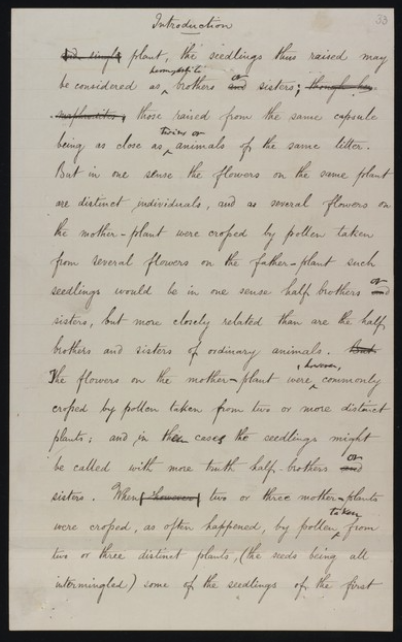 Introduction
33
plant, the seedlings thus raised may
hermaphrodite or
be considered as brothers and sisters; though her-
maphrodites, those raised from the same capsule
twins or
being as close as animals of the same litter.
But in one sense the flowers on the same plant
are distinct individuals, and as several flowers on
the mother-plant were crossed by pollen taken
from several flowers on the father-plant such
or
seedlings would be in one sense half brothers and
sisters, but more closely related than are the half
brothers and sisters of ordinary animals. But
, however,
The flowers on the mother-plant were commonly
crossed by pollen taken from two or more distinct
plants; and in these cases the seedlings might
or
be called with more truth half-brothers and
sisters. When (however) two or three mother-plants
taken
were crossed, as often happened, by pollen from
two or three distinct plants, (the seeds being all
intermingled) some of the seedlings of the first